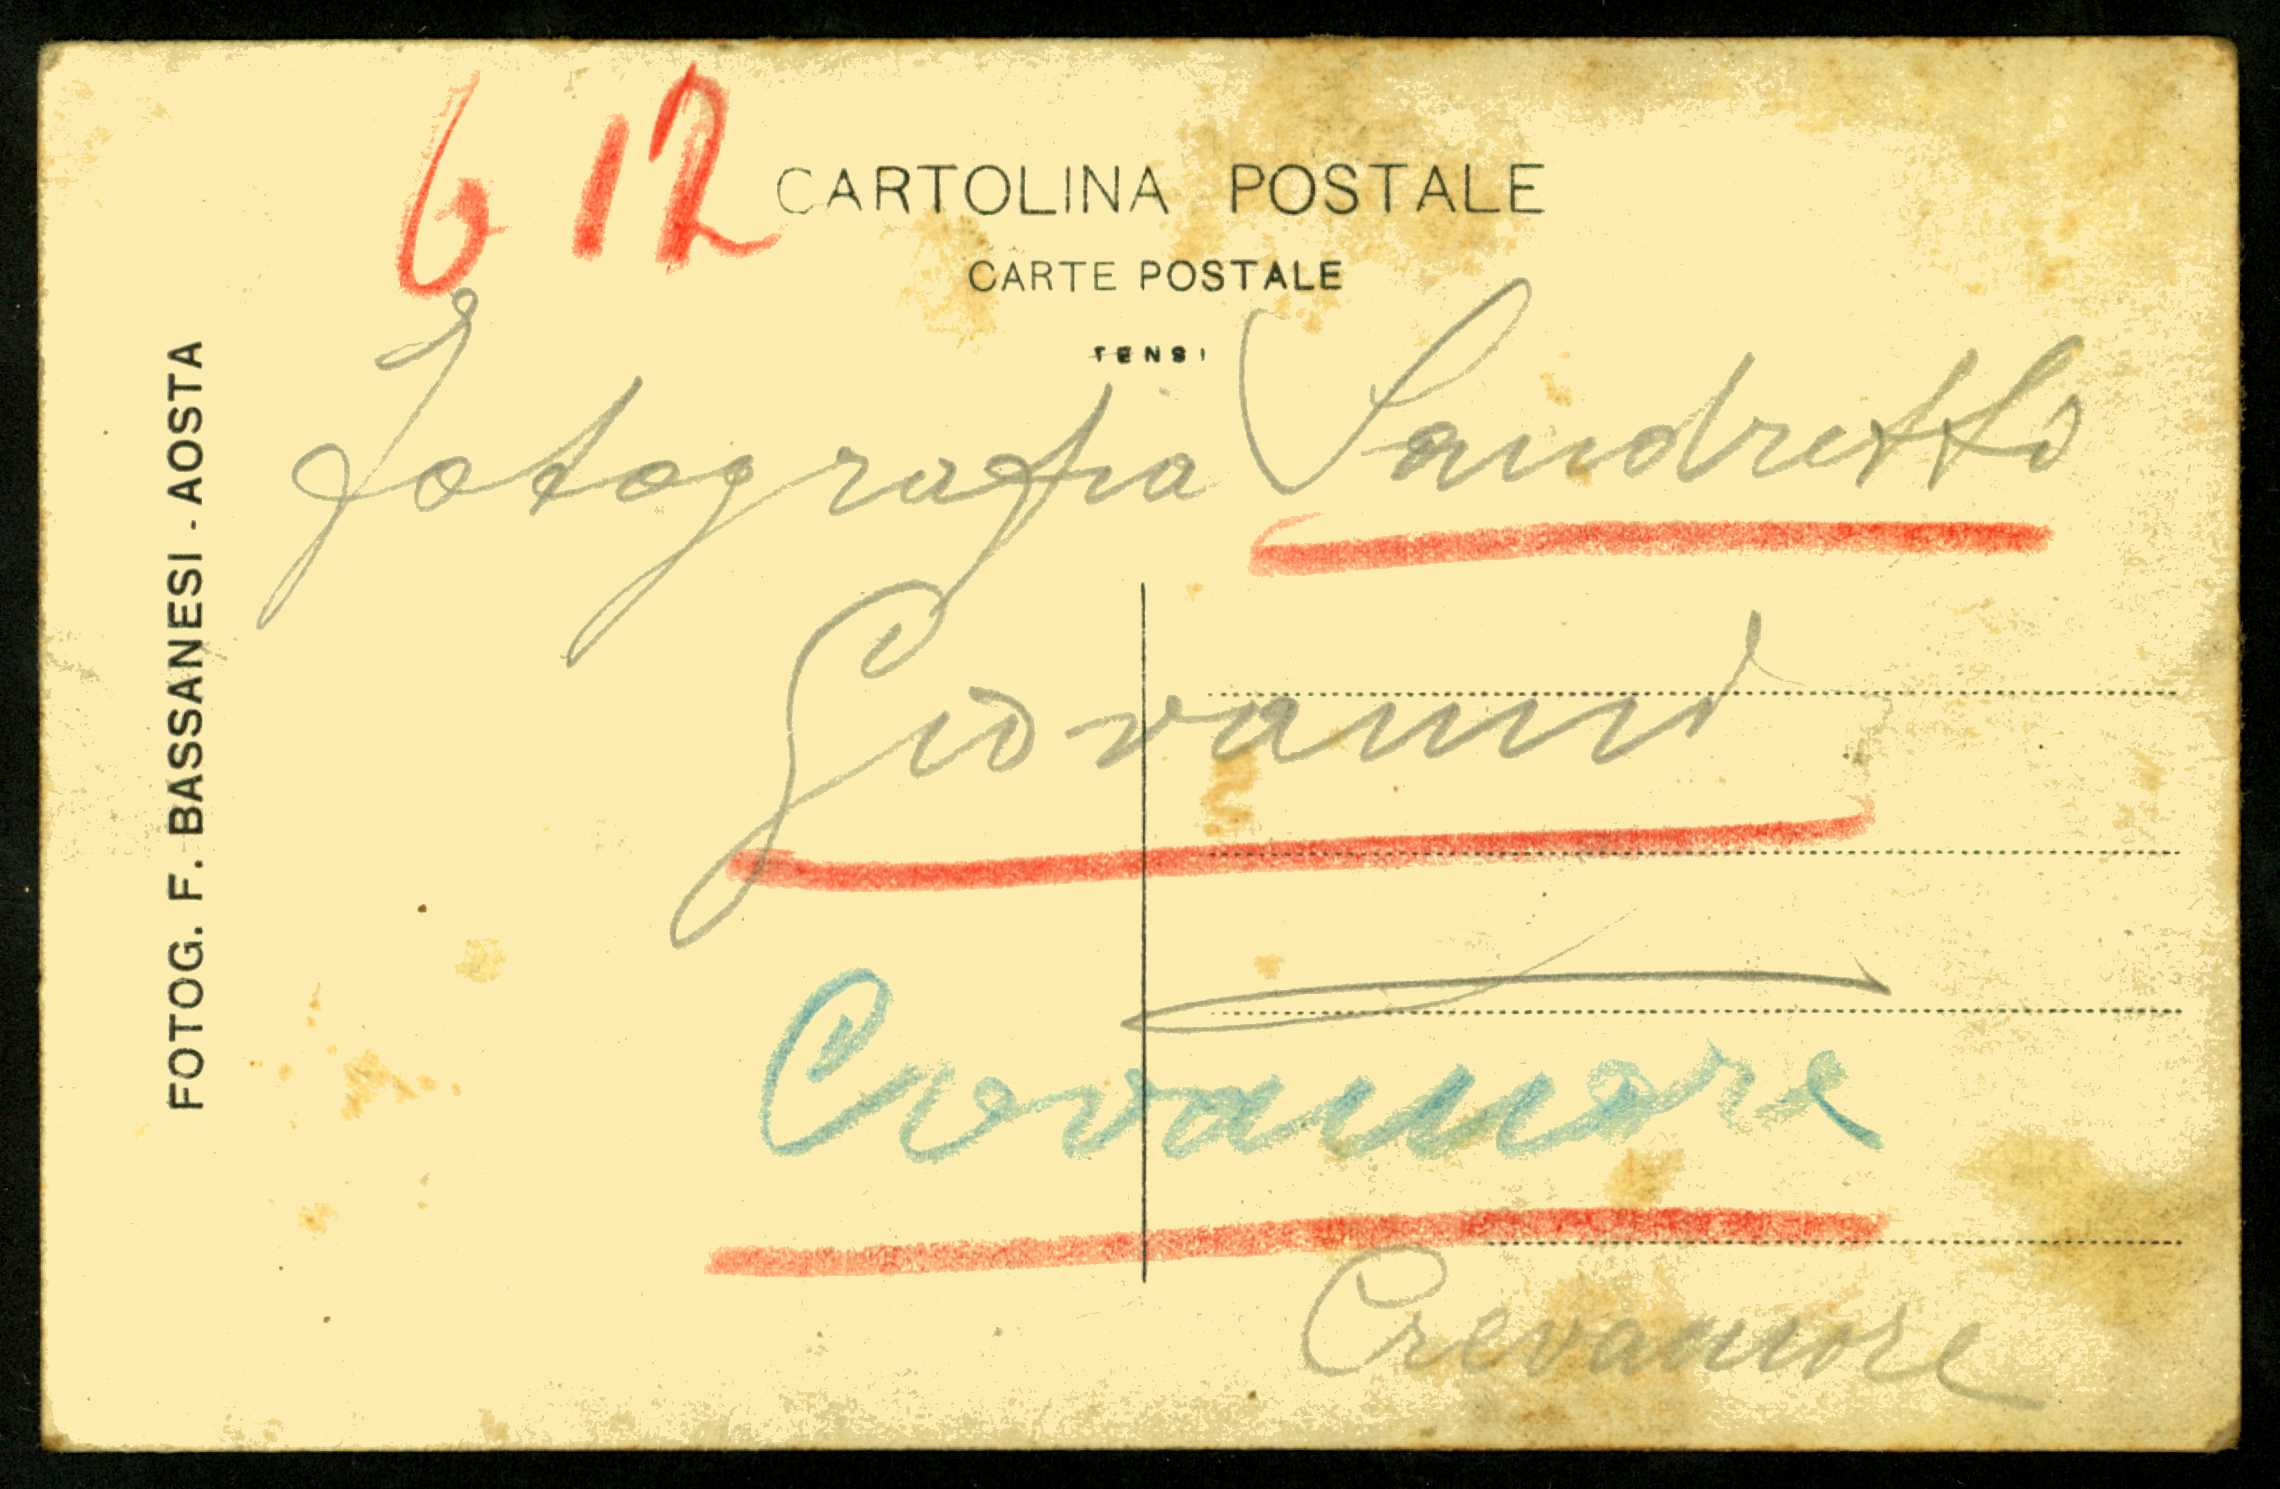 6 12
CARTOLINA POSTALE
CARTE POSTALE
TENSI
Fotografia Sandretto
Giovanni
Crevacuore
Crevacuore
FOTOG. F. BASSANESI - AOSTA